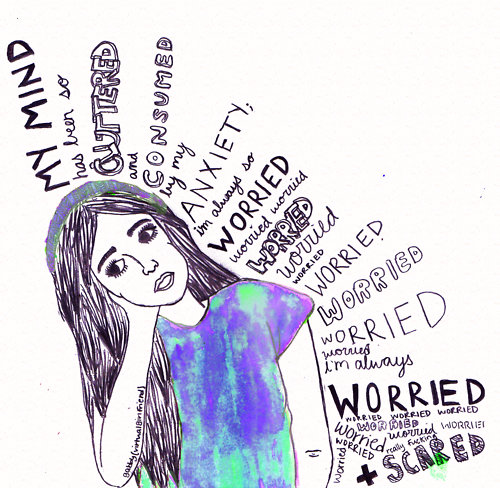 MY MIND
has been so
CLUTTERED
and
CONSUMED
by my
ANXIETY,
i'm always so
WORRIED
worried worried
WORRIED
worried
WORRIED
WORRIED
WORRIED
WORRIED
worried
i'm always
WORRIED
WORRIED WORRIED WORRIED
WORRIED
worried worried WORRIED
WORRIED really fucking
worried + SCARED